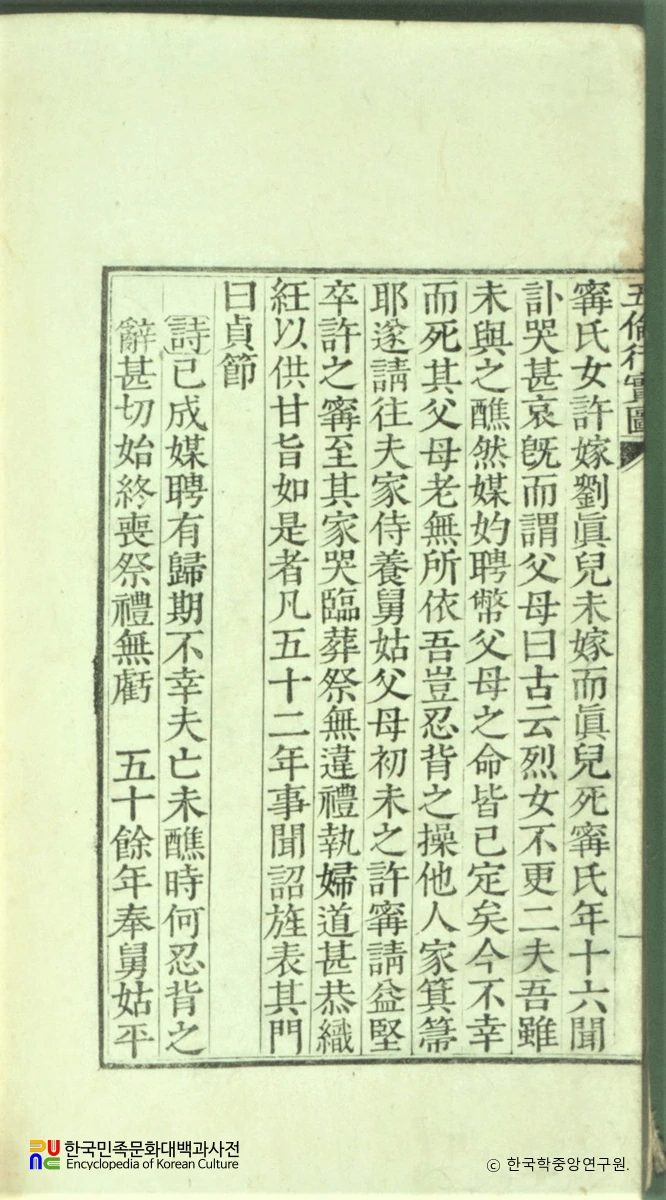 五倫行實圖
寗氏女許嫁劉眞兒未嫁而眞兒死寗氏年十六聞
訃哭甚哀旣而謂父母曰古云烈女不更二夫吾雖
未與之醮然媒妁聘幣父母之命皆已定矣今不幸
而死其父母老無所依吾豈忍背之操他人家箕箒
耶遂請往夫家侍養舅姑父母初未之許寗請益堅
卒許之寗至其家哭臨葬祭無違禮執婦道甚恭織
紝以供甘旨如是者凡五十二年事聞詔旌表其門
曰貞節
詩已成媒聘有歸期不幸夫亡未醮時何忍背之
辭甚切始終喪祭禮無虧 五十餘年奉舅姑平
한국민족문화대백과사전
Encyclopedia of Korean Culture
ⓒ 한국학중앙연구원.